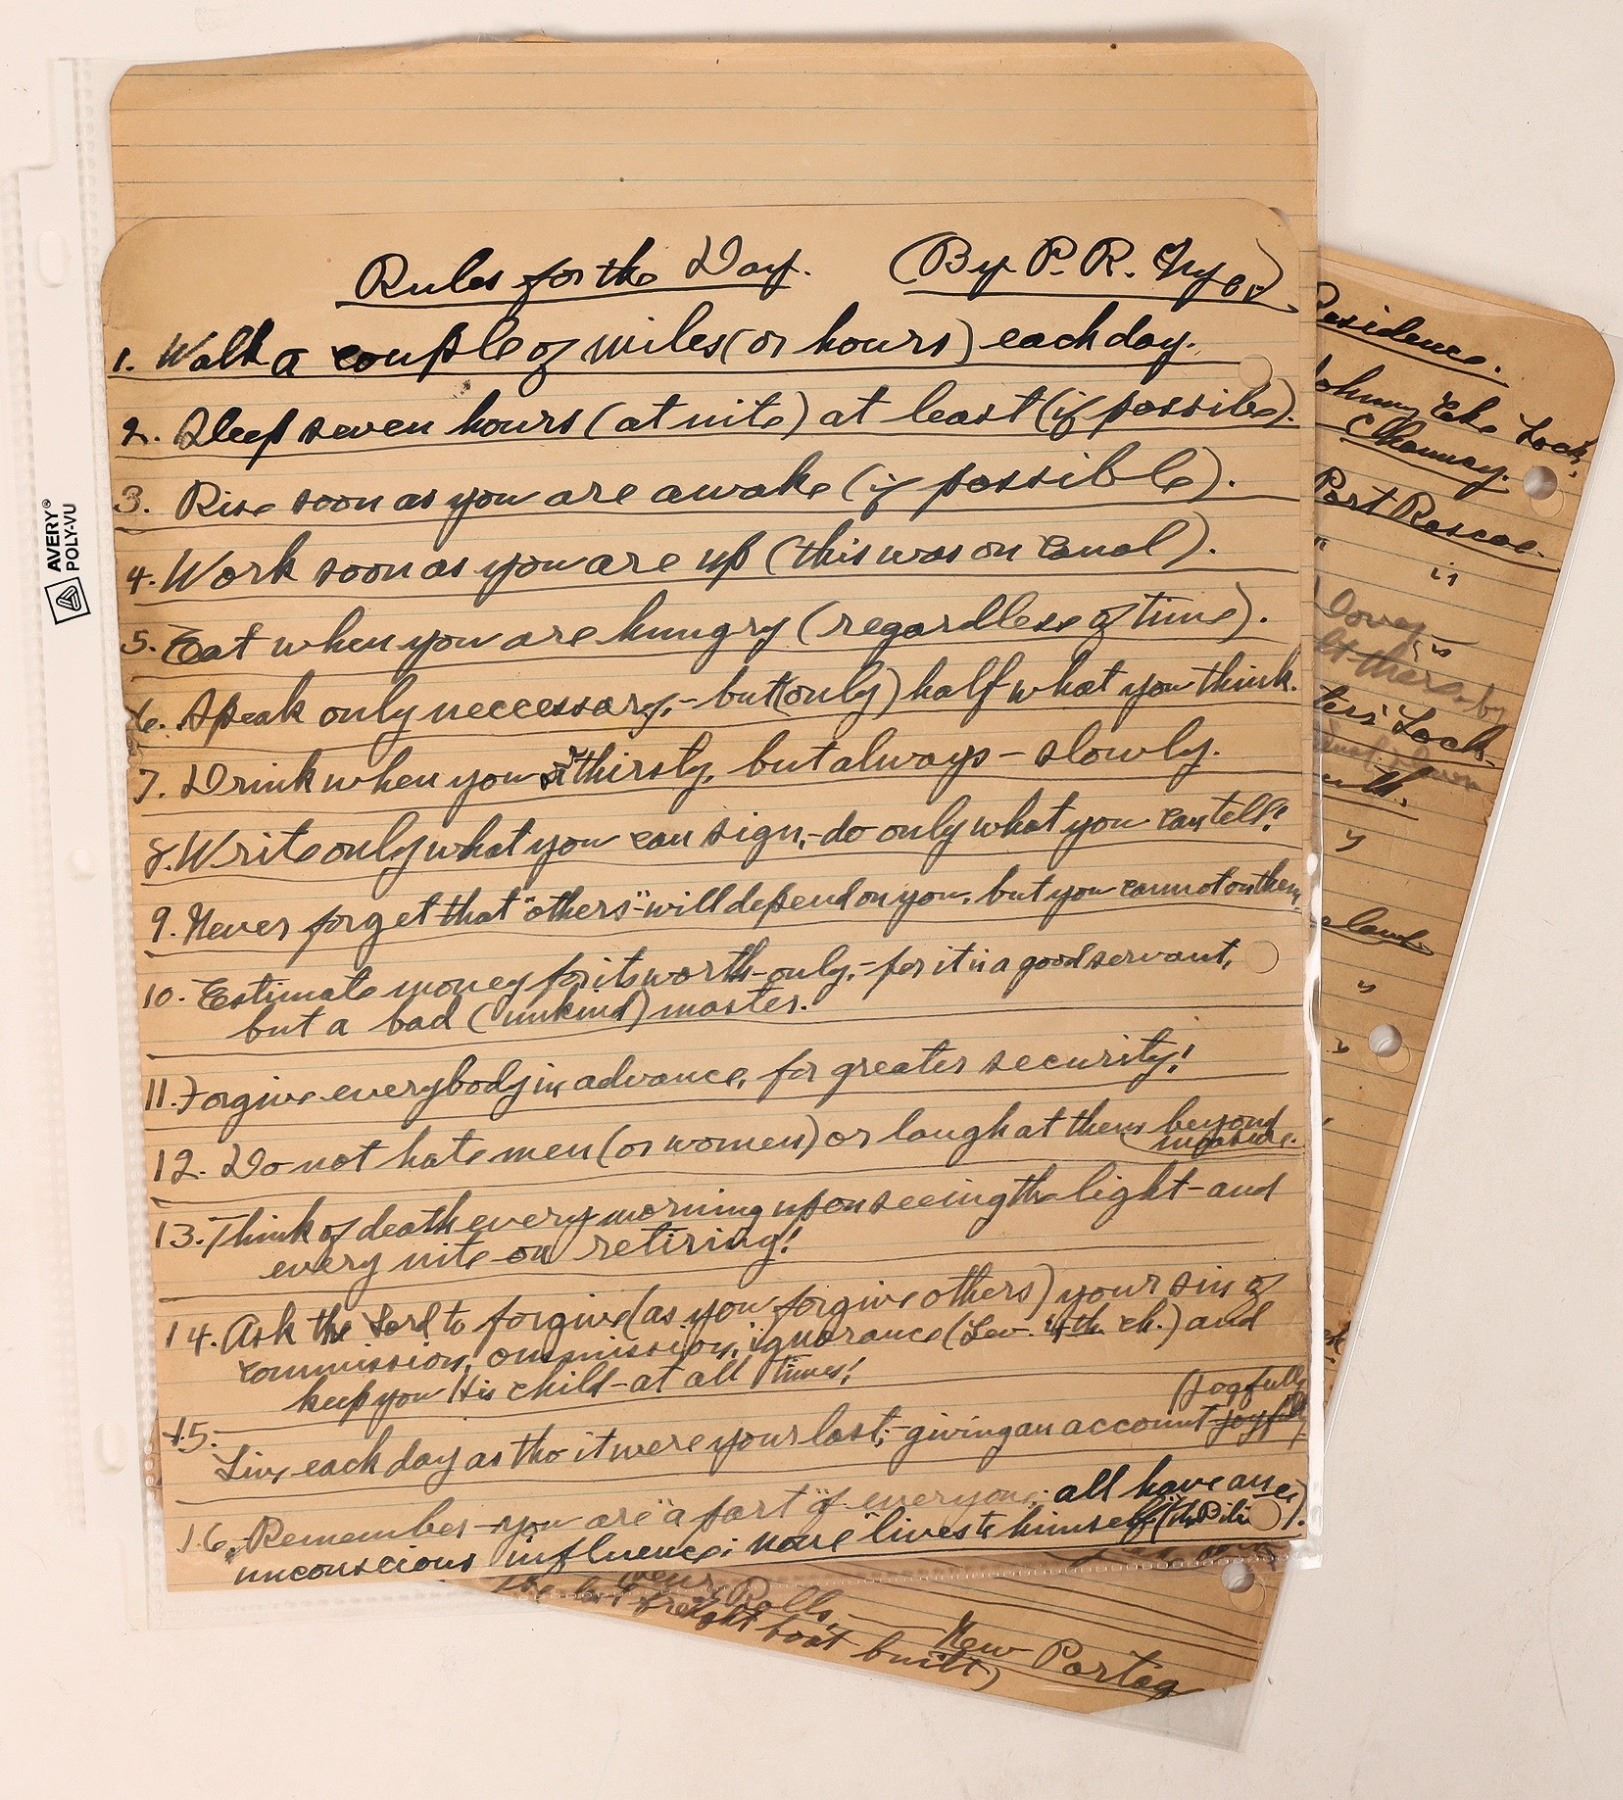 Rules for the Day. (By P. R. Nyer)
1. Walk a couple of miles (or hours) each day.
2. Sleep seven hours (at nite) at least (if possible).
3. Rise soon as you are awake (if possible).
4. Work soon as you are up (this was on Canal).
5. Eat when you are hungry (regardless of time).
6. Speak only neccessary,- but (only) half what you think.
7. Drink when you r thirsty, but always - slowly.
8. Write only what you can sign,- do only what you can tell!
9. Never forget that "others" will depend on you, but you cannot on them.
10. Estimate money for its worth-only,- for it is a good servant,
but a bad (unkind) master.
11. Forgive everybody in advance, for greater security!
12. Do not hate men (or women) or laugh at them beyond
measure.
13. Think of death every morning upon seeing the light - and
every nite on retiring!
14. Ask the Lord to forgive (as you forgive others) your sin of
commission, ommission, ignorance (Lev. 4th ch.) and
keep you His child - at all times!
(Joyfully
15.
Live each day as tho it were your last;- giving an account joyfully
16. Remember - you are "a part" of everyone; all have an
unconscious influence; none "lives to himself"
Residence.
Johnny Cake Lock,
Channay.
Port Roscoe.
"
is
Lock
"
New Portag
Rolls,
freight boat built)
AVERY®
POLY-VU